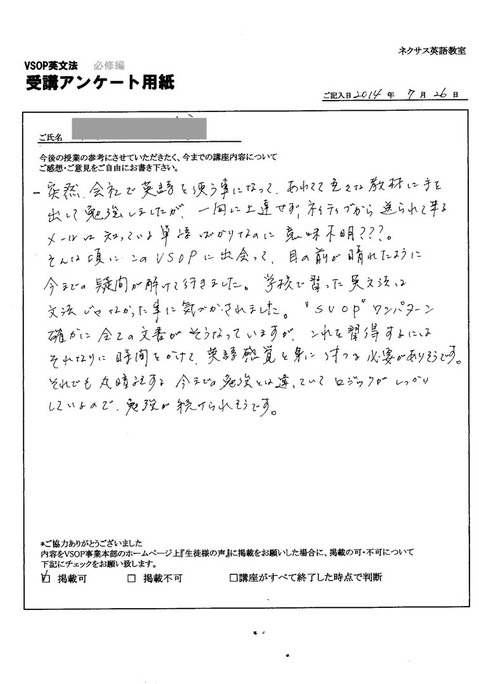 ネクサス英語教室
VSOP英文法 必修編
受講アンケート用紙
ご記入日 2014 年 7 月 26 日
ご氏名
今後の授業の参考にさせていただきたく、今までの講座内容について
ご感想・ご意見をご自由にお書き下さい。
突然、会社で英語を使う事になって、あわてて色々な教材に手を
出して勉強しましたが、一向に上達せず、ネイティブから送られて来る
メールは知っている単語ばかりなのに意味不明???。
そんな頃にこのVSOPに出会って、目の前が晴れたように
今までの疑問が解けて行きました。学校で習った英文法は
文法じゃなかった事に気づかされました。"SVOP"ワンパターン
確かに全ての文書がそうなっていますが、これを習得するには
それなりに時間をかけて、英語感覚を身に付ける必要がありそうです。
それでも丸暗記する今までの勉強とは違っていてロジックがしっかり
しているので、勉強が続けられそうです。
*ご協力ありがとうございました
内容をVSOP事業本部のホームページ上『生徒様の声』に掲載をお願いした場合に、掲載の可・不可について
下記にチェックをお願い致します。
☑ 掲載可 □ 掲載不可 □講座がすべて終了した時点で判断